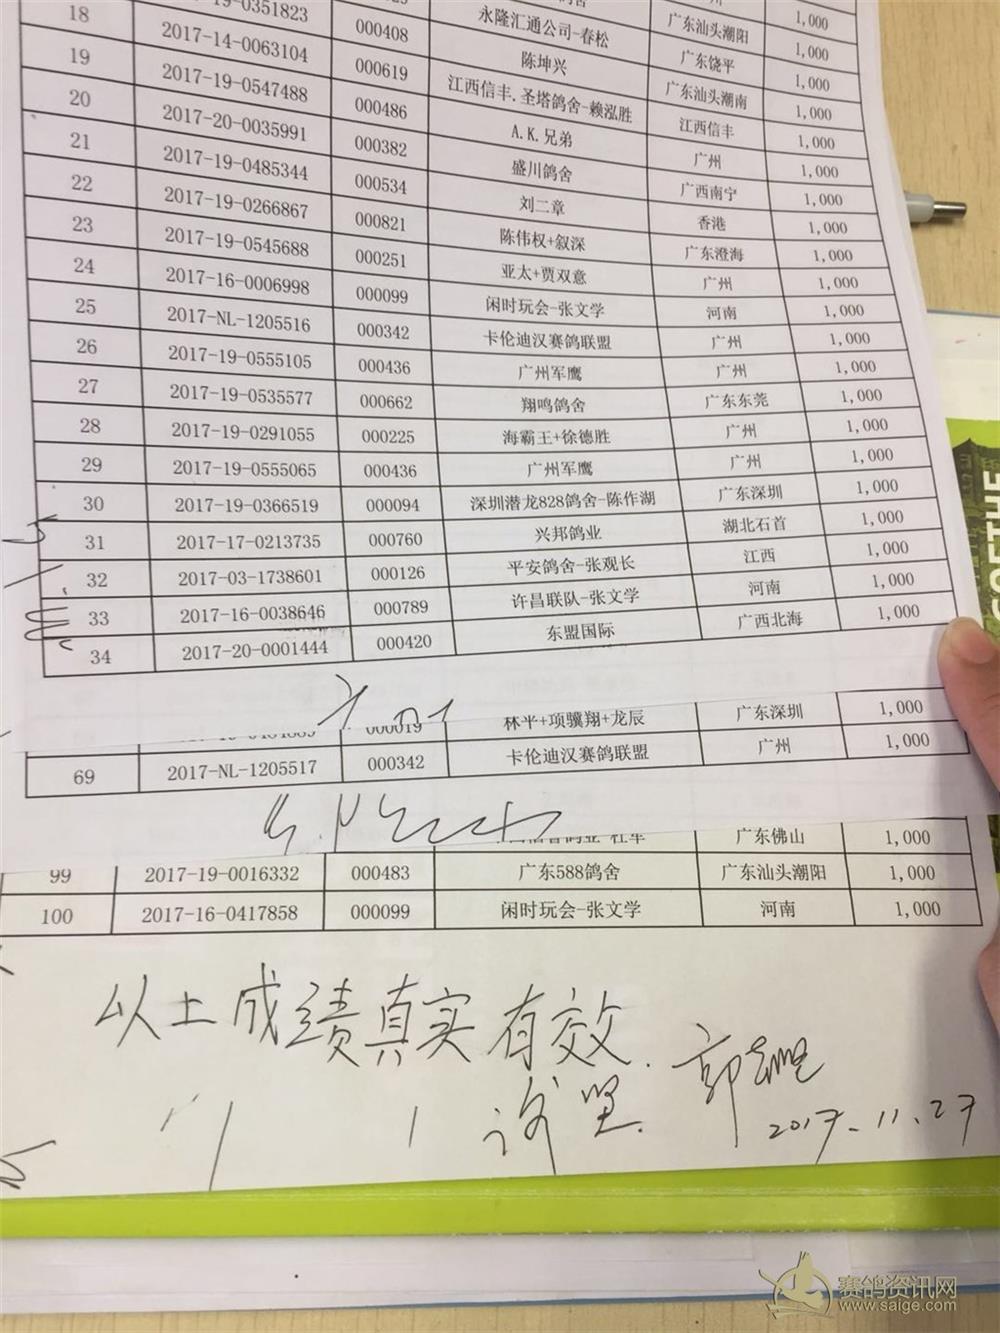 广东汕头潮阳 1,000
永隆汇通公司-春松 广东饶平 1,000
2017-19-0351823 000408 陈坤兴 广东汕头潮南 1,000
18 2017-14-0063104 000619 江西信丰.圣塔鸽舍-赖泓胜 江西信丰 1,000
19 2017-19-0547488 000486 A.K.兄弟 广州 1,000
20 2017-20-0035991 000382 盛川鸽舍 广西南宁 1,000
21 2017-19-0485344 000534 刘二章 香港 1,000
22 2017-19-0266867 000821 陈伟权+叙深 广东澄海 1,000
23 2017-19-0545688 000251 亚太+贾双意 广州 1,000
24 2017-16-0006998 000099 闲时玩会-张文学 河南 1,000
25 2017-NL-1205516 000342 卡伦迪汉赛鸽联盟 广州 1,000
26 2017-19-0555105 000436 广州军鹰 广州 1,000
27 2017-19-0535577 000662 翔鸣鸽舍 广东东莞 1,000
28 2017-19-0291055 000225 海霸王+徐德胜 广州 1,000
29 2017-19-0555065 000436 广州军鹰 广州 1,000
30 2017-19-0366519 000094 深圳潜龙828鸽舍-陈作湖 广东深圳 1,000
31 2017-17-0213735 000760 兴邦鸽业 湖北石首 1,000
32 2017-03-1738601 000126 平安鸽舍-张观长 江西 1,000
33 2017-16-0038646 000789 许昌联队-张文学 河南 1,000
34 2017-20-0001444 000420 东盟国际 广西北海 1,000
000019 林平+项骥翔+龙辰 广东深圳 1,000
69 2017-NL-1205517 000342 卡伦迪汉赛鸽联盟 广州 1,000
广东佛山 1,000
99 2017-19-0016332 000483 广东588鸽舍 广东汕头潮阳 1,000
100 2017-16-0417858 000099 闲时玩会-张文学 河南 1,000
以上成绩真实有效.
2017.11.27
赛鸽资讯网
www.saige.com